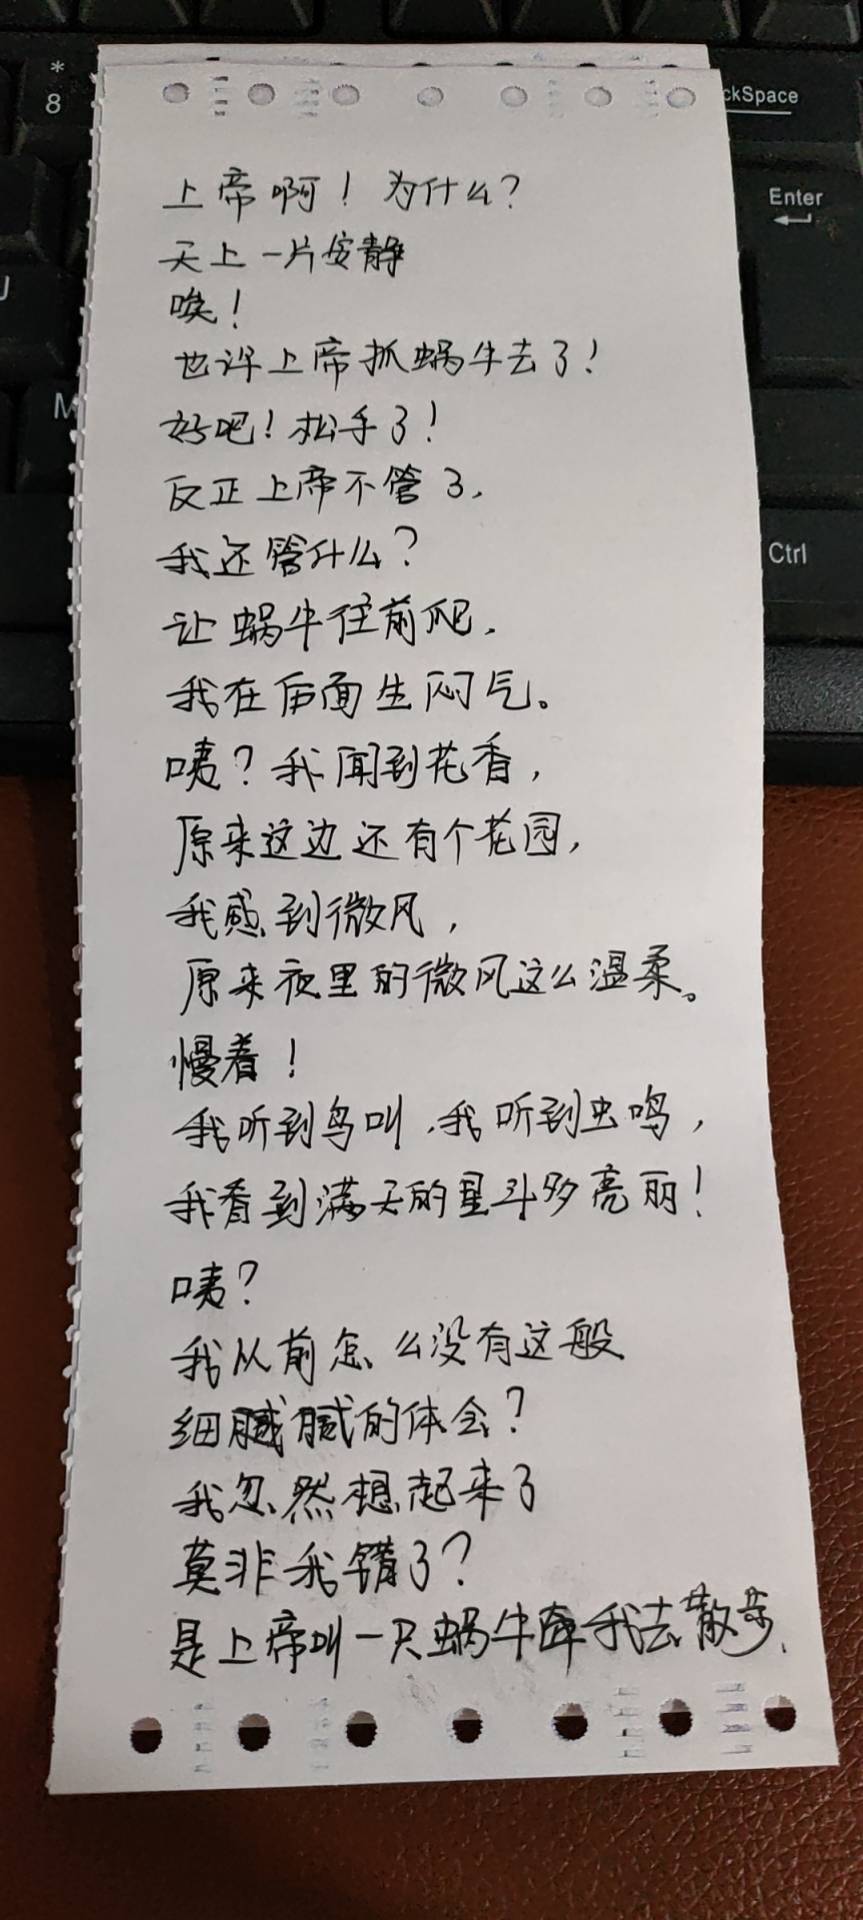 *
8
ckSpace
Enter
J
M
Ctrl
上帝啊！为什么？
天上一片安静
唉！
也许上帝抓蜗牛去了！
好吧！松手了！
反正上帝不管了，
我还管什么？
让蜗牛往前爬，
我在后面生闷气。
咦？我闻到花香，
原来这边还有个花园，
我感到微风，
原来夜里的微风这么温柔。
慢着！
我听到鸟叫，我听到虫鸣，
我看到满天的星斗多亮丽！
咦？
我从前怎么没有这般
细腻腻的体会？
我忽然想起来了
莫非我错了？
是上帝叫一只蜗牛牵我去散步。